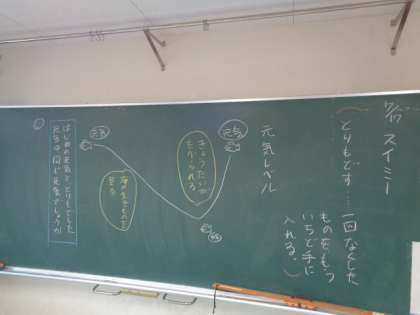 7/17 スイミー
とりもどす……一回なくした
ものをもう
いちど手に
入れる。
元気レベル
元気
きょうだいが
たべられる
海の生きものたち
見る
元気
はじめの元気と、とりもどした
元気は、同じ元気でしょうか